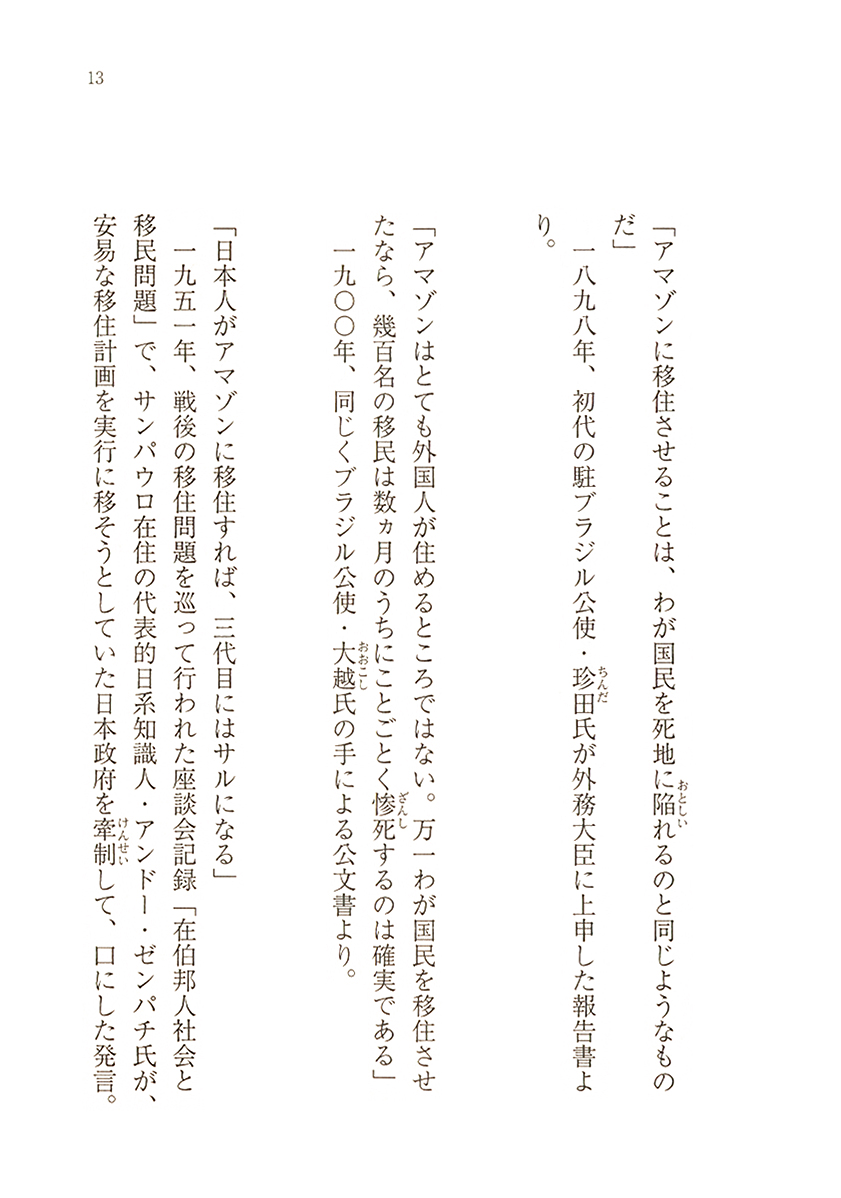 13
「アマゾンに移住させることは、わが国民を死地に陥れるのと同じようなもの
だ」
一八九八年、初代の駐ブラジル公使・珍田氏が外務大臣に上申した報告書よ
り。
「アマゾンはとても外国人が住めるところではない。万一わが国民を移住させ
たなら、幾百名の移民は数ヵ月のうちにことごとく惨死するのは確実である」
一九〇〇年、同じくブラジル公使・大越氏の手による公文書より。
「日本人がアマゾンに移住すれば、三代目にはサルになる」
一九五一年、戦後の移住問題を巡って行われた座談会記録「在伯邦人社会と
移民問題」で、サンパウロ在住の代表的日系知識人・アンドー・ゼンパチ氏が、
安易な移住計画を実行に移そうとしていた日本政府を牽制して、口にした発言。
おとしい
ちんだ
ざんし
おおこし
けんせい